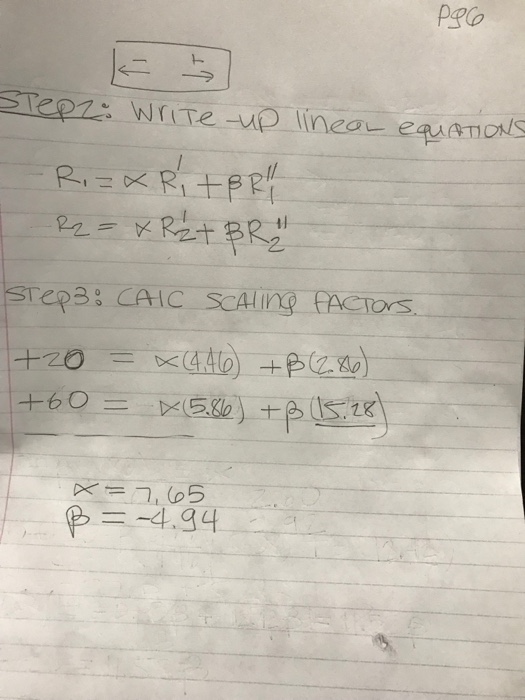 Pg6
← − + →
STEP2: WRITE-UP linear equATIONS
R₁ = αR₁' + βR₁''
R₂ = αR₂' + βR₂''
STEP3: CAlC SCAling fACTORS.
+20 = α(4.46) + β(2.86)
+60 = α(5.86) + β(15.28)
α = 7.65
β = −4.94